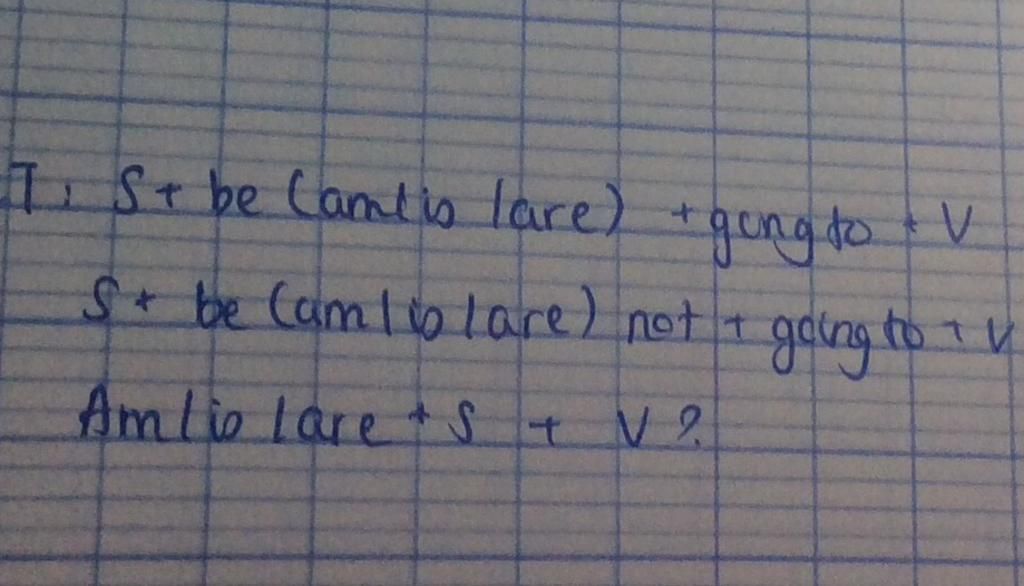 T: S + be (am/is/are) + going to + V
S + be (am/is/are) not + going to + V
Am/is/are + S + V?